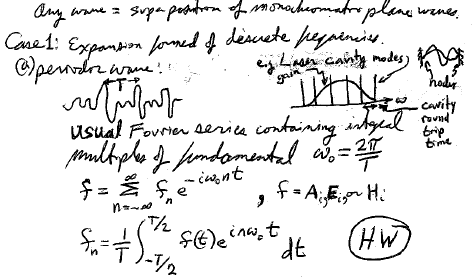 Any wave = superposition of monochromatic plane waves.
Case 1: Expansion formed of discrete frequencies.
(a) periodic wave:
e.g. Laser cavity modes
gain
T
nodes
ω
cavity
round
trip
time
usual Fourier series containing integral
multiples of fundamental ω₀ = 2π/T
f = Σ_{n=-∞}^{∞} f_n e^{-iω₀nt} , f = A_i, E_i, or H_i
f_n = 1/T ∫_{-T/2}^{T/2} f(t) e^{inω₀t} dt
HW